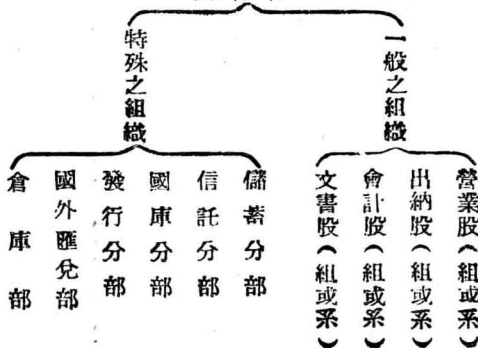 一般之組織
營業股（組或系）
出納股（組或系）
會計股（組或系）
文書股（組或系）
特殊之組織
儲蓄分部
信託分部
國庫分部
發行分部
國外匯兌部
倉庫部